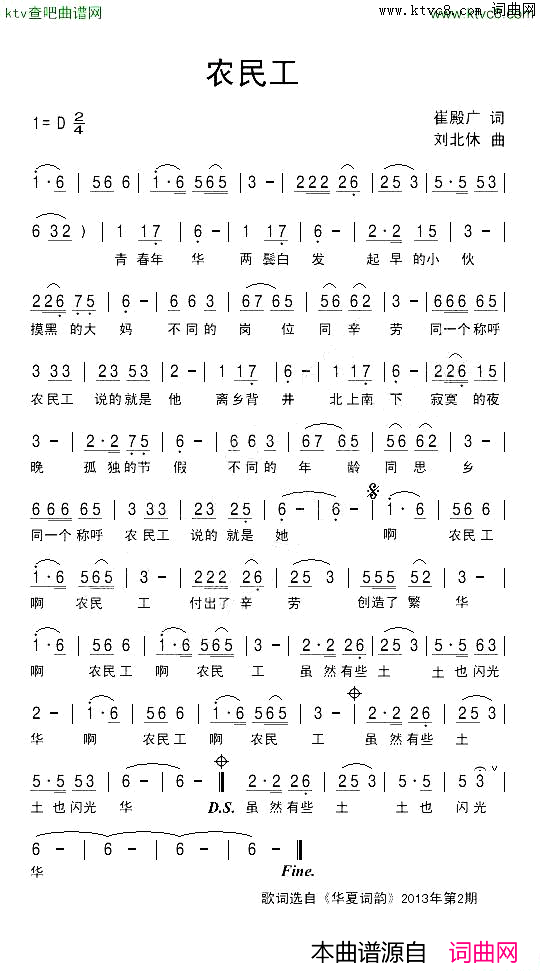 ktv查吧曲谱网 www.ktvc8.com 词曲网
农民工
1=D 2/4
崔殿广 词
刘北休 曲
1·6 | 56 6 | 1·6 565 | 3 - | 222 26 | 25 3 | 5·5 53 |
6 32 ) | 1 17 | 6 - | 1 17 | 6 - | 2·2 15 | 3 - |
青 春年 华 两 鬓白 发 起 早 的小 伙
226 75 | 6 - | 6 6 3 | 67 65 | 56 62 | 3 - | 666 65 |
摸黑 的大 妈 不 同 的 岗 位 同 辛 劳 同一个 称呼
3 33 | 23 53 | 2 - | 1 17 | 6 - | 1 17 | 6 - | 226 15 |
农民工 说的 就是 他 离乡背 井 北上南 下 寂寞 的夜
3 - | 2·2 75 | 6 - | 6 6 3 | 67 65 | 56 62 | 3 - |
晚 孤 独的节 假 不 同 的 年 龄 同 思 乡
666 65 | 3 33 | 23 25 | 6 - | 6 - | 1·6 | 56 6 |
同一个 称呼 农 民工 说的 就是 她 啊 农民 工
1·6 565 | 3 - | 222 26 | 25 3 | 555 52 | 3 - |
啊 农民 工 付出了 辛 劳 创造了 繁 华
1·6 | 56 6 | 1·6 565 | 3 - | 2·2 26 | 25 3 | 5·5 63 |
啊 农民 工 啊 农民 工 虽 然有些 土 土 也 闪光
2 - | 1·6 | 56 6 | 1·6 565 | 3 - | 2·2 26 | 25 3 |
华 啊 农民 工 啊 农民 工 虽 然有些 土
5·5 53 | 6 - | 6 - ‖ 2·2 26 | 25 3 | 5·5 | 5 3 |
土 也 闪光 华 D.S. 虽 然有些 土 土 也 闪光
6 - | 6 - | 6 - | 6 - ‖
华 Fine.
歌词选自《华夏词韵》2013年第2期
本曲谱源自 词曲网